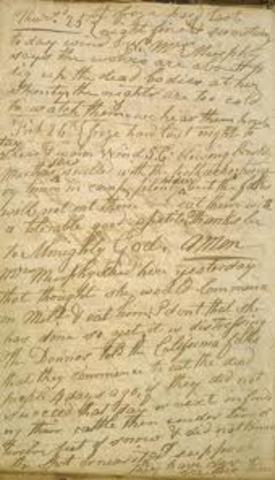 25th froze hard last
night fine & sunshiny
to day wind W. Mrs Murphy
says the wolves are about to
dig up the dead bodies at her
shanty, the nights are too cold
to watch them, we hear them howl
26th froze hard last night to
day
clear & warm Wind S.E. blowing briskly
Marthas jaw swelled with the toothache
in camp, plenty but the folks
will not eat them we eat them with
a tolerable good apetite Thanks be
to Almighty God. Amen
Mrs Murphy said here yesterday
that thought she would commence
on Milt. & eat him. I dont that she
has done so yet, it is distressing
The Donnos told the California folks
that they commence to eat the dead
people 4 days ago, if they did not
succeed that day or next in finding
their cattle then under ten or
twelve feet of snow & did not know
the spot or near it, I suppose
they have